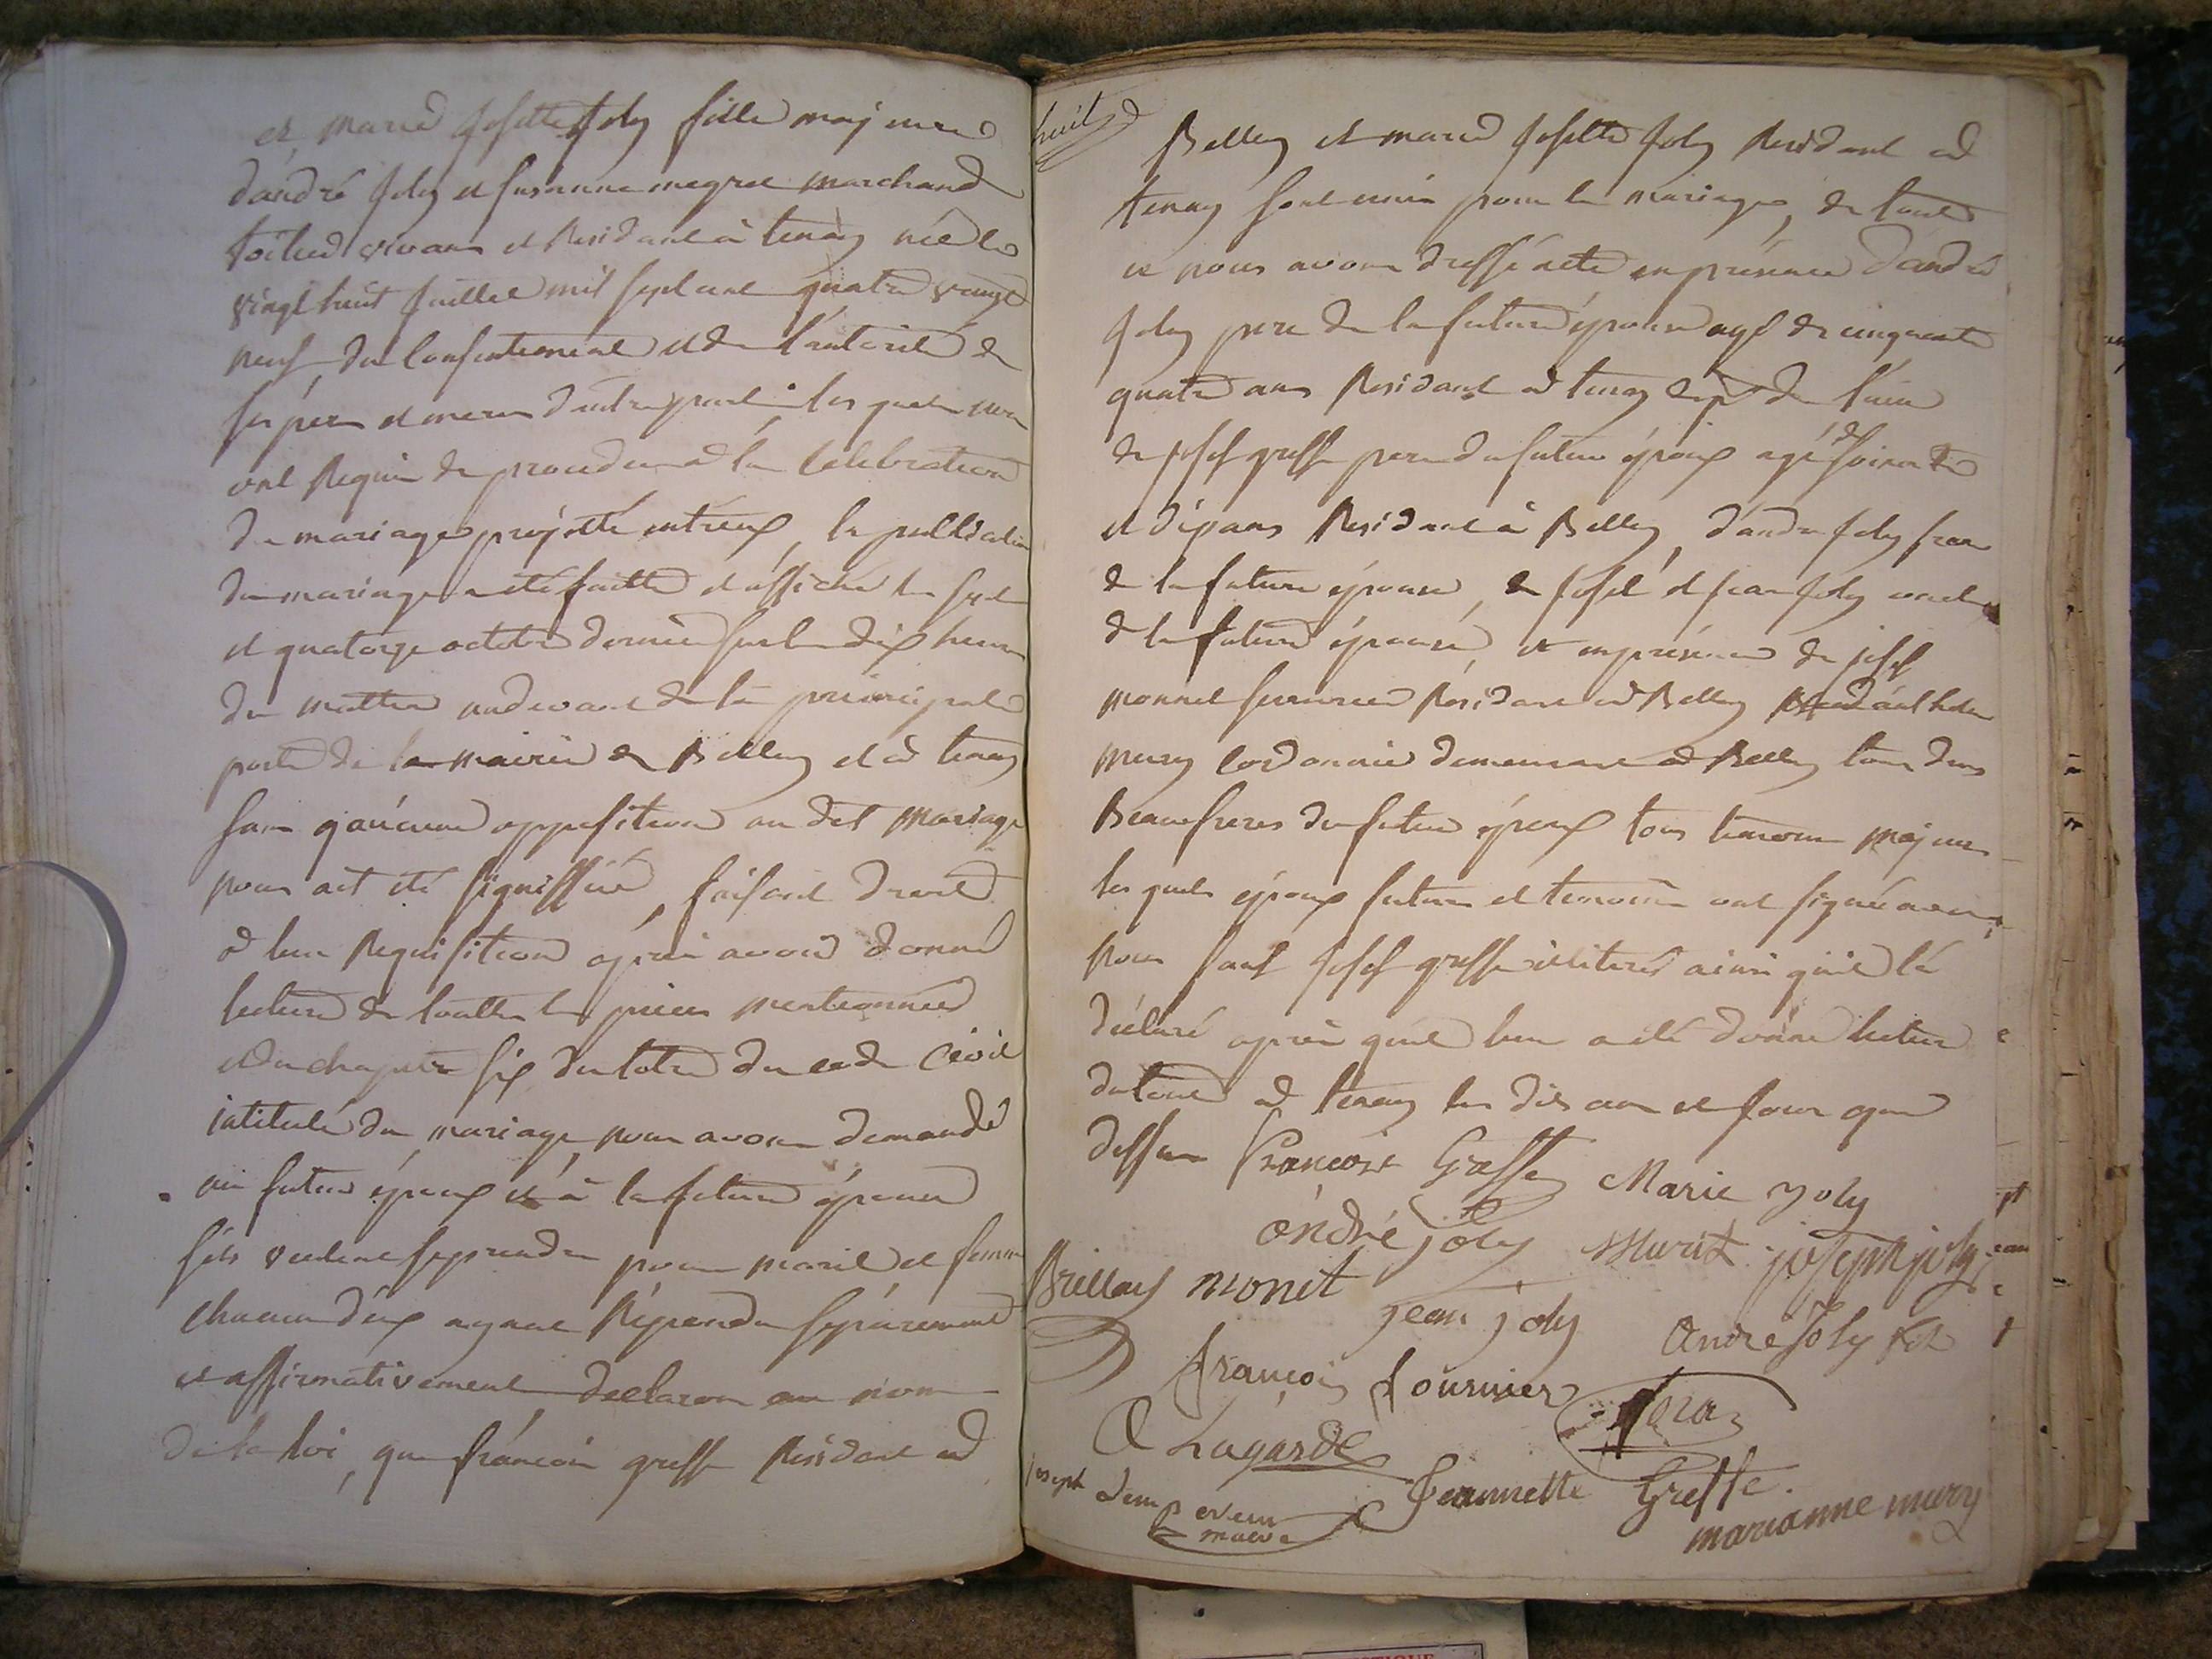 et, marie josette joly fille majeure
d'andré joly et susanne megret marchand
toilier vivans et Residant à tenay née le
vingt huit juillet mil sept cent quatre vingt
neuf du consentement et de l'autorité de
ses père et mere d'autre part, les quels nous
ont Requis de proceder a la Celebration
du mariage projetté entreux, la publication
du mariage a été faitte et affiché les sept
et quatorze octobre dernier sur les dix heures
du mattin audevant de la principale
porte de la mairie de Belley et a tenay
sans qaúcune opposition au dit mariage
nous ait été signiffiée, faisant droit
a leur Requisition aprés avoir donné
lecture de touttes les pieces mentionnées
et du chapitre six du titre du code Civil
intitulé du mariage, nous avons demandé
au futur époux et à la future épouse
sils veulent se prendre pour mari et femme
chacun d'eux ayant Répondu séparément
et affirmativement déclarons au nom
de la loi, que françois greffe Residant a
huit
Belley et marie josette joly Residant a
tenay sont unis pour le mariage, de tout
ce nous avons dressé acte en présence d'andré
joly pere de la future épouse agé de cinquante
quatre ans Residant a tenay de l'ain
de josef greffe pere du futur époux agé de soixante
et dix ans Residant à Belley, d'andre joly frere
de la future épouse, de josef et jean joly oncles
de la future épouse, et en présence de josef
monnet serrurier Résidant a Belley
mury cordonnier demeurant a Belley tous deux
Beaufreres du futur époux tous temoins majeurs
les quels époux futurs et temoins ont signé avec
nous sauf josef greffe illiteré ainsi qu'il l'a
déclaré aprés que leur a été donné lecture
du tout a tenay les dits an et jour que
dessus François Greffe Marie Joly
ándré joly Muriz joseph joly
Brillat monet jean joly André Joly fils
françois fournier
Lagarde
Joseph Jeannette Greffe.
marianne mury